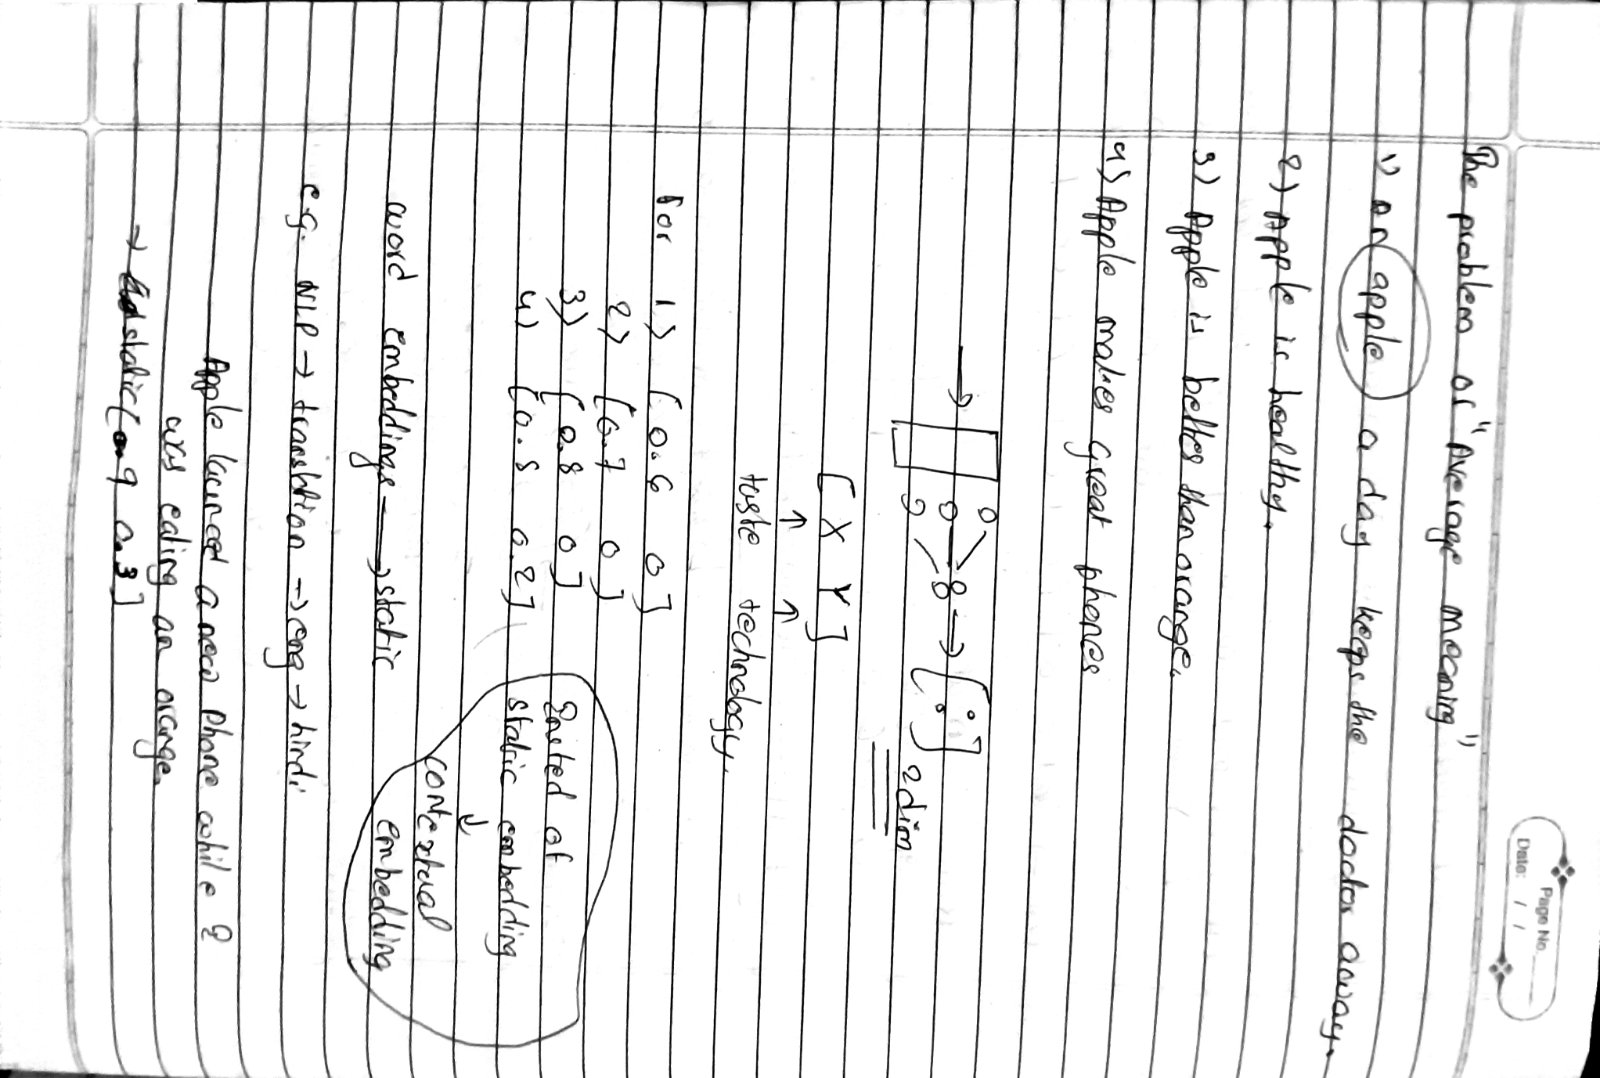 Page No.
Date: / /
The problem or "Average meaning"
1) An apple a day keeps the doctor away.
2) Apple is healthy.
3) Apple is better than orange.
4) Apple makes great phones
2 dim
[ X Y ]
↑ ↑
taste technology.
For 1) [ 0.6 0 ]
2) [ 0.7 0 ]
3) [ 0.8 0 ]
4) [ 0.5 0.2 ]
Insted of
static embedding
↓
contextual
embedding
word embeddings → static
e.g. NLP → translation → eng → hindi
Apple launced a new phone while I
was eating an orange.
→ static [ 0.9 0.3 ]